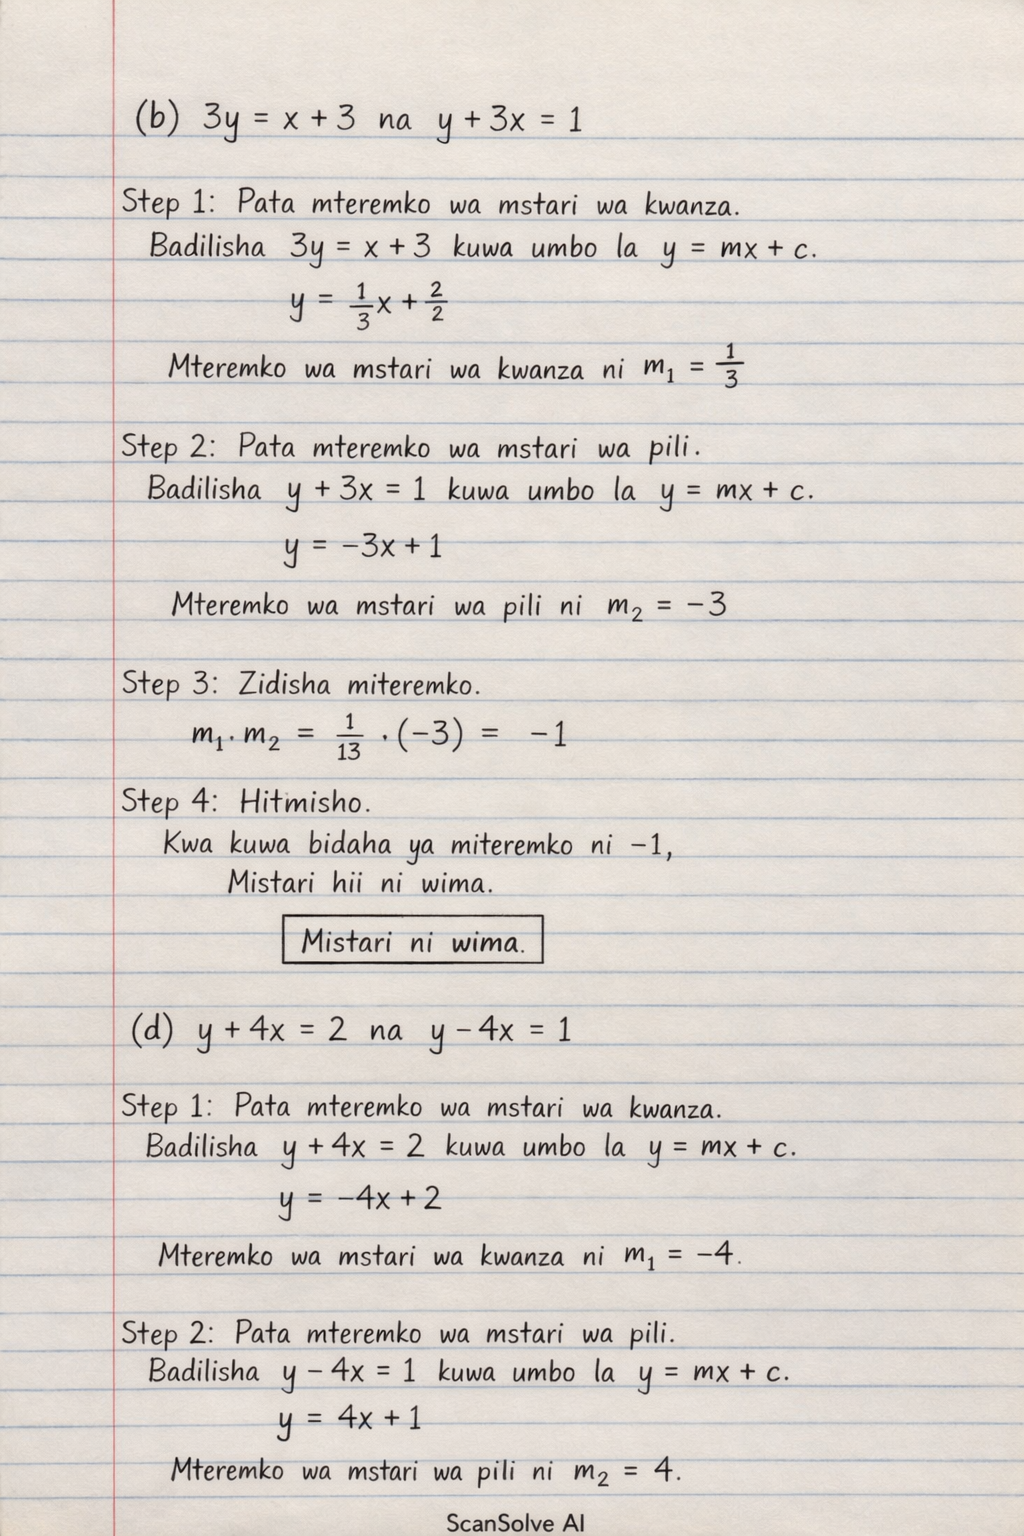 (b) 3y = x + 3 na y + 3x = 1
Step 1: Pata mteremko wa mstari wa kwanza.
Badilisha 3y = x + 3 kuwa umbo la y = mx + c.
y = 1/3 x + 2/2
Mteremko wa mstari wa kwanza ni m₁ = 1/3
Step 2: Pata mteremko wa mstari wa pili.
Badilisha y + 3x = 1 kuwa umbo la y = mx + c.
y = −3x + 1
Mteremko wa mstari wa pili ni m₂ = −3
Step 3: Zidisha miteremko.
m₁ · m₂ = 1/13 · (−3) = −1
Step 4: Hitmisho.
Kwa kuwa bidaha ya miteremko ni −1,
Mistari hii ni wima.
Mistari ni wima.
(d) y + 4x = 2 na y − 4x = 1
Step 1: Pata mteremko wa mstari wa kwanza.
Badilisha y + 4x = 2 kuwa umbo la y = mx + c.
y = −4x + 2
Mteremko wa mstari wa kwanza ni m₁ = −4.
Step 2: Pata mteremko wa mstari wa pili.
Badilisha y − 4x = 1 kuwa umbo la y = mx + c.
y = 4x + 1
Mteremko wa mstari wa pili ni m₂ = 4.
ScanSolve AI